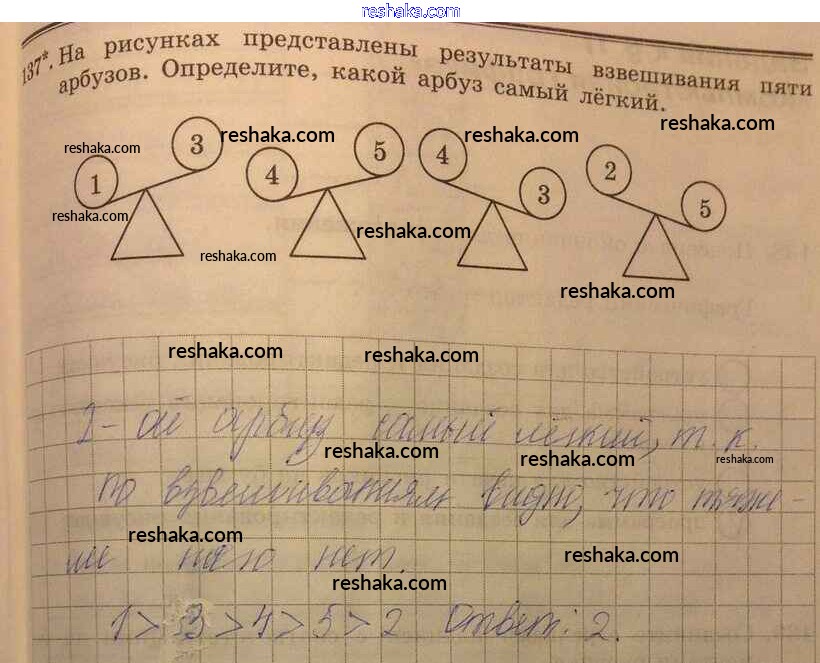 reshaka.com
137*. На рисунках представлены результаты взвешивания пяти
арбузов. Определите, какой арбуз самый лёгкий.
reshaka.com
reshaka.com reshaka.com reshaka.com
1 3 4 5 4 3 2 5
reshaka.com
reshaka.com
reshaka.com
reshaka.com
reshaka.com reshaka.com
2-ой арбуз самый лёгкий, т.к.
reshaka.com reshaka.com reshaka.com
по взвешиваниям видно, что тяже-
reshaka.com
ле него нет.
reshaka.com
reshaka.com
1 > 3 > 4 > 5 > 2 Ответ: 2.